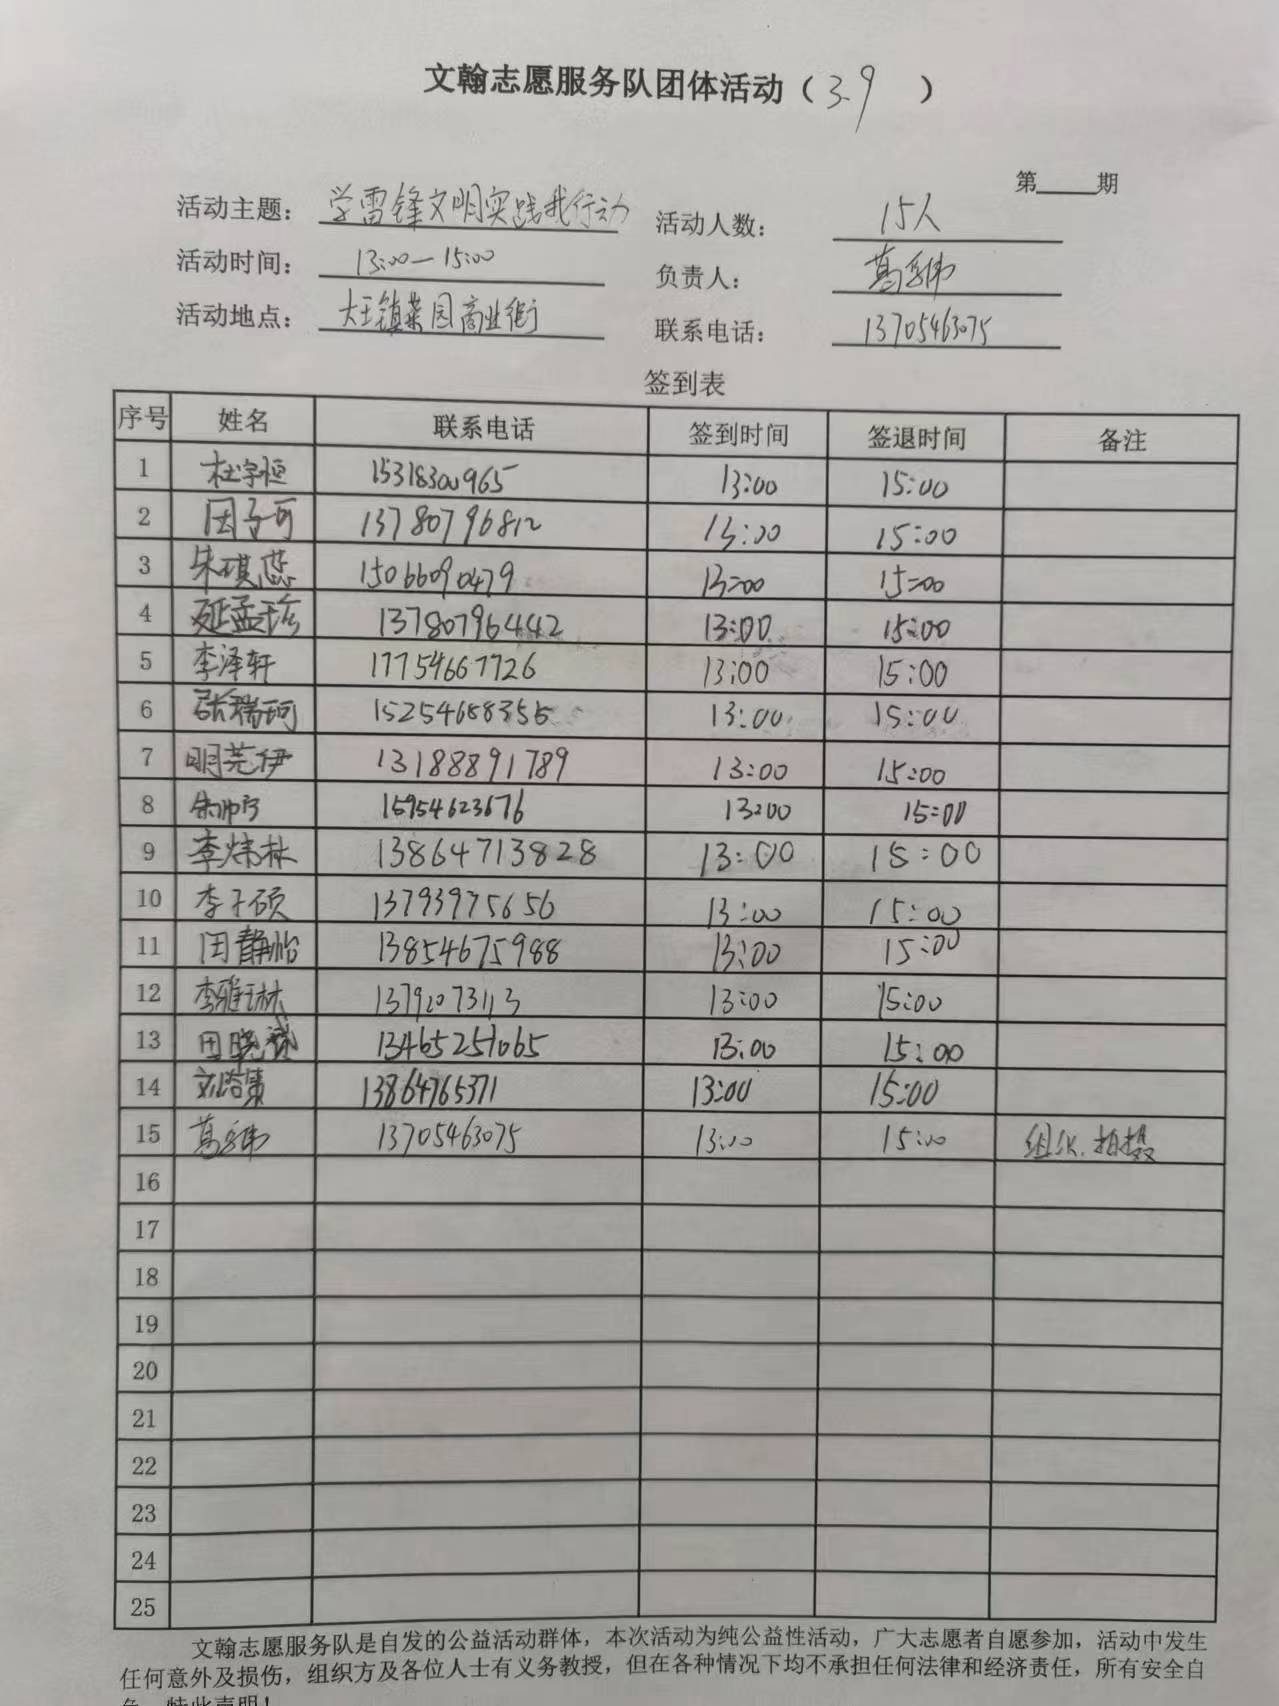 文翰志愿服务队团体活动（3.9）
第 期
活动主题： 学雷锋文明实践我行动 活动人数： 15人
活动时间： 13:00—15:00 负责人： 葛
活动地点： 大王镇菜园商业街 联系电话： 13705463075
签到表
序号 姓名 联系电话 签到时间 签退时间 备注
1 杜宇恒 15318300965 13:00 15:00
2 田子可 13780796812 13:00 15:00
3 朱琪 15066090479 13:00 15:00
4 延孟 13780796442 13:00 15:00
5 李泽轩 17754667726 13:00 15:00
6 张瑞珂 15254688355 13:00 15:00
7 明芫伊 13188891789 13:00 15:00
8 朱帅 15954623676 13:00 15:00
9 李炜林 13864713828 13:00 15:00
10 李子硕 13793975656 13:00 15:00
11 田静怡 13854675988 13:00 15:00
12 李雅琳 13792073113 13:00 15:00
13 田晓斌 13465251065 13:00 15:00
14 刘 13864765371 13:00 15:00
15 葛 13705463075 13:00 15:00 组织.拍摄
16
17
18
19
20
21
22
23
24
25
文翰志愿服务队是自发的公益活动群体，本次活动为纯公益性活动，广大志愿者自愿参加，活动中发生
任何意外及损伤，组织方及各位人士有义务教授，但在各种情况下均不承担任何法律和经济责任，所有安全自
负，特此声明！